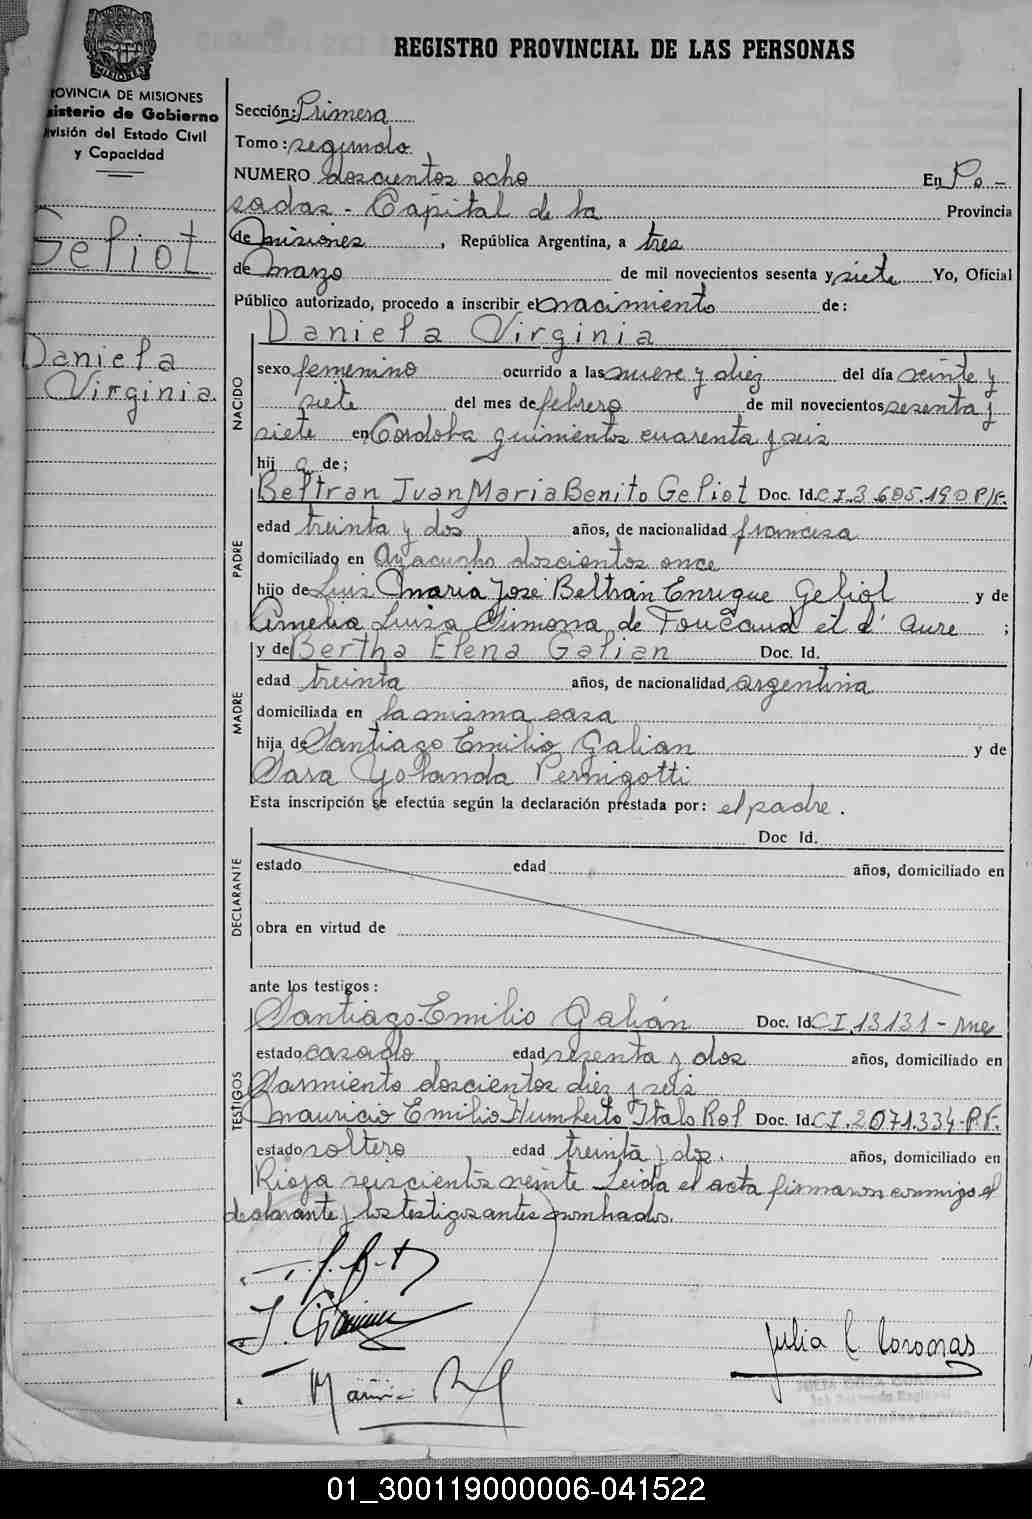 REGISTRO PROVINCIAL DE LAS PERSONAS
PROVINCIA DE MISIONES
Ministerio de Gobierno
División del Estado Civil
y Capacidad
Geliot
Daniela
Virginia
Sección: Primera
Tomo: segundo
NUMERO doscientos ocho En Po-
sadas - Capital de la Provincia
de Misiones, República Argentina, a tres
de Marzo de mil novecientos sesenta y siete Yo, Oficial
Público autorizado, procedo a inscribir el nacimiento de:
NACIDO
Daniela Virginia
sexo femenino ocurrido a las nueve y diez del día veinte y
siete del mes de febrero de mil novecientos sesenta y
siete en Cordoba quinientos cuarenta y seis
hij a de;
PADRE
Beltran Juan Maria Benito Geliot Doc. Id. C I. 3.605.190 P/F.
edad treinta y dos años, de nacionalidad francesa
domiciliado en Ayacucho doscientos once
hijo de Luis Maria José Beltrán Enrique Geliot y de
Amelia Luisa Simona de Foucaud et d' Aure ;
MADRE
y de Bertha Elena Galian Doc. Id.
edad treinta años, de nacionalidad argentina
domiciliada en la misma casa
hija de Santiago Emilio Galian y de
Sara Yolanda Pernigotti
Esta inscripción se efectúa según la declaración prestada por: el padre.
DECLARANTE
Doc Id.
estado edad años, domiciliado en
obra en virtud de
ante los testigos:
TESTIGOS
Santiago Emilio Galián Doc. Id. C I. 13131 - mnes
estado casado edad sesenta y dos años, domiciliado en
Sarmiento doscientos diez y seis
Mauricio Emilio Humberto Italo Rol Doc. Id. C I. 2071.334-P.F.
estado soltero edad treinta y dos. años, domiciliado en
Rioja seiscientos veinte Leida el acta firmaron conmigo el
declarante y los testigos antes nombrados.
Julia C Coronas
01_300119000006-041522